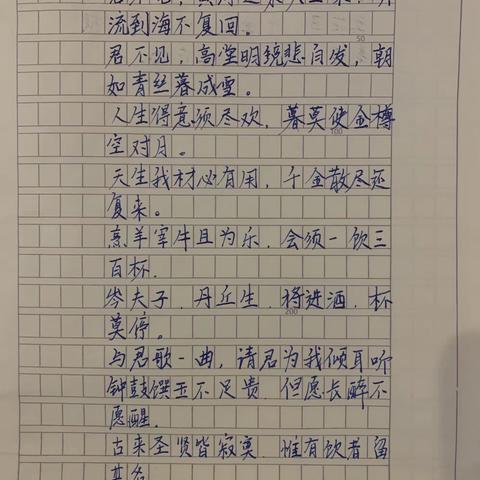 流到海不复回。
君不见，高堂明镜悲白发，朝
50
如青丝暮成雪。
人生得意须尽欢，暮莫使金樽
100
空对月。
天生我材必有用，千金散尽还
复来。
烹羊宰牛且为乐，会须一饮三
百杯.
岑夫子，丹丘生，将进酒，杯
200
莫停。
与君歌一曲，请君为我倾耳听
钟鼓馔玉不足贵，但愿长醉不
愿醒.
古来圣贤皆寂寞，惟有饮者留
其名